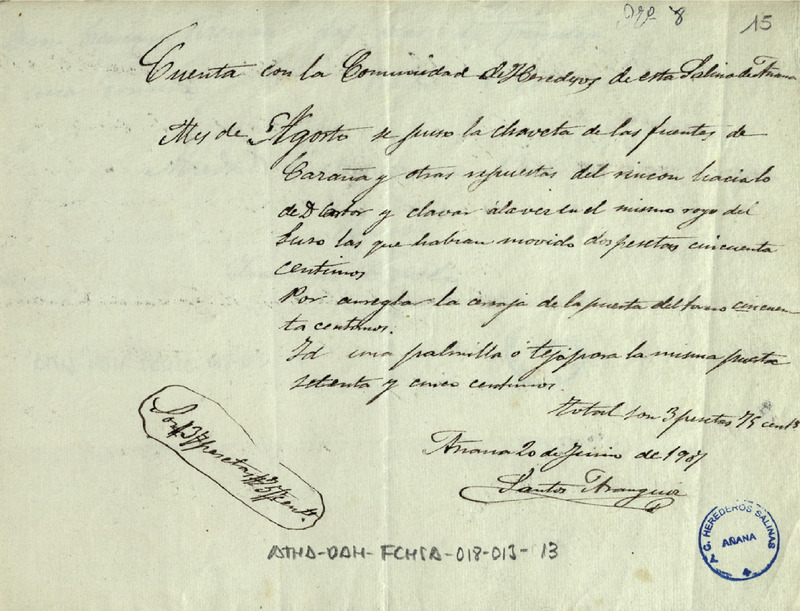 15
Cuenta con la Comunidad de Herederos de esta Salina de Añana
Mes de Agosto se puso la chaveta de las fuentes de
y otras repuestas del rincon hacia lo
de D Castor y clavar a la vez en el mismo royo del
suso las que habian movido dos pesetas cincuenta
centimos
Por arreglar la cerraja de la puerta del cincuen
ta centimos.
Id una palmilla o teja para la misma puerta
setenta y cinco centimos.
total son 3 pesetas 75 cents
Añana 20 de Junio de 1907
Santos Aranguiz
Son 3 pesetas 75 cents.
ATHA-DAH-FCHSA-018-013-13
A. G. HEREDEROS SALINAS
AÑANA